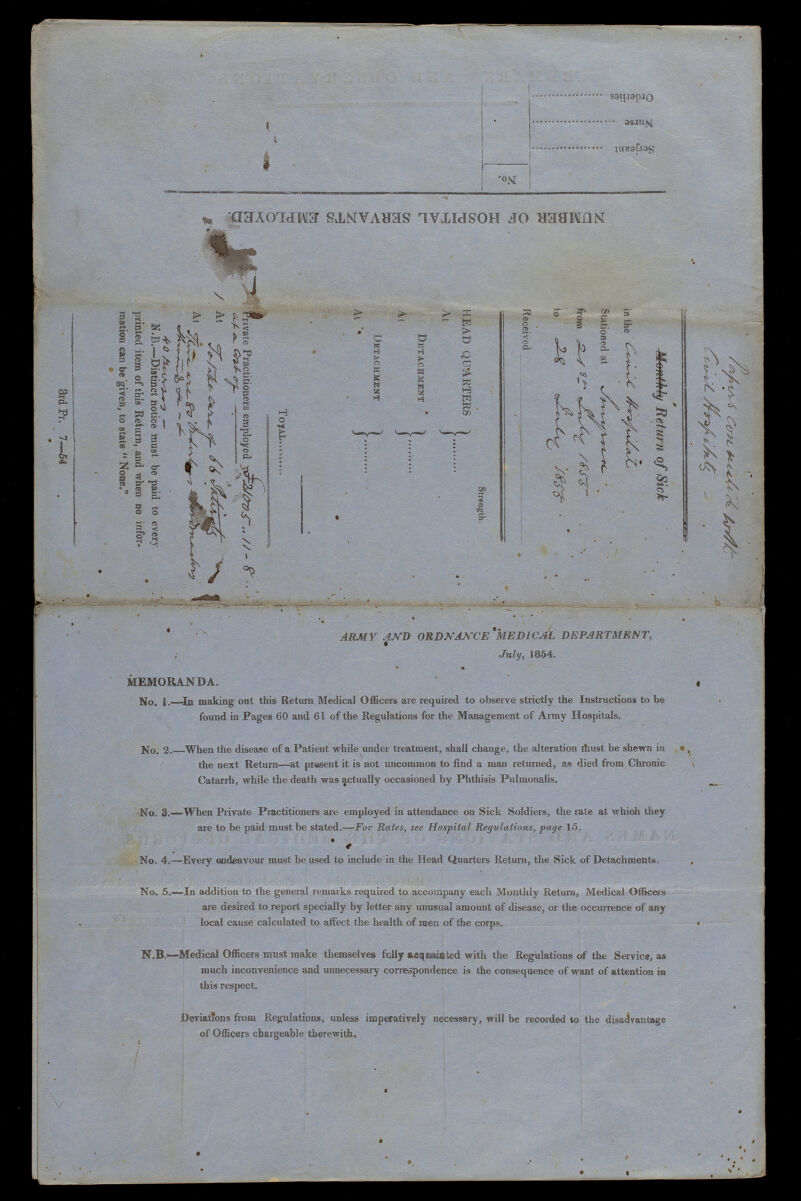 Orderlies
Nurse
Serjeant
No.
NUMBER OF HOSPITAL SERVANTS EMPLOYED.
Papers connected with
Civil Hospitals
Monthly Return of Sick
in the Civil Hospital
Stationed at Smyrna
from 21st July 1855
to 28 July 1855.
Received
Strength.
HEAD QUARTERS
At
DETACHMENT
At
DETACHMENT
At
TOTAL
Private Practitioners employed
at a Cost of £2005..11-8
At To take care of 66 Patients
At There are 80 Orderlies
40 Nurses
N.B.—Distinct notice must be paid to every
printed item of this Return, and when no infor-
mation can be given, to state "None."
3rd Pr. 7—54
ARMY AND ORDNANCE MEDICAL DEPARTMENT,
July, 1854.
MEMORANDA.
No. 1.—In making out this Return Medical Officers are required to observe strictly the Instructions to be
found in Pages 60 and 61 of the Regulations for the Management of Army Hospitals.
No. 2.—When the disease of a Patient while under treatment, shall change, the alteration must be shewn in
the next Return—at present it is not uncommon to find a man returned, as died from Chronic
Catarrh, while the death was actually occasioned by Phthisis Pulmonalis.
No. 3.—When Private Practitioners are employed in attendance on Sick Soldiers, the rate at which they
are to be paid must be stated.—For Rates, see Hospital Regulations, page 15.
No. 4.—Every endeavour must be used to include in the Head Quarters Return, the Sick of Detachments.
No. 5.—In addition to the general remarks required to accompany each Monthly Return, Medical Officers
are desired to report specially by letter any unusual amount of disease, or the occurrence of any
local cause calculated to affect the health of men of the corps.
N.B.—Medical Officers must make themselves fully acquainted with the Regulations of the Service, as
much inconvenience and unnecessary correspondence is the consequence of want of attention in
this respect.
Deviations from Regulations, unless imperatively necessary, will be recorded to the disadvantage
of Officers chargeable therewith.